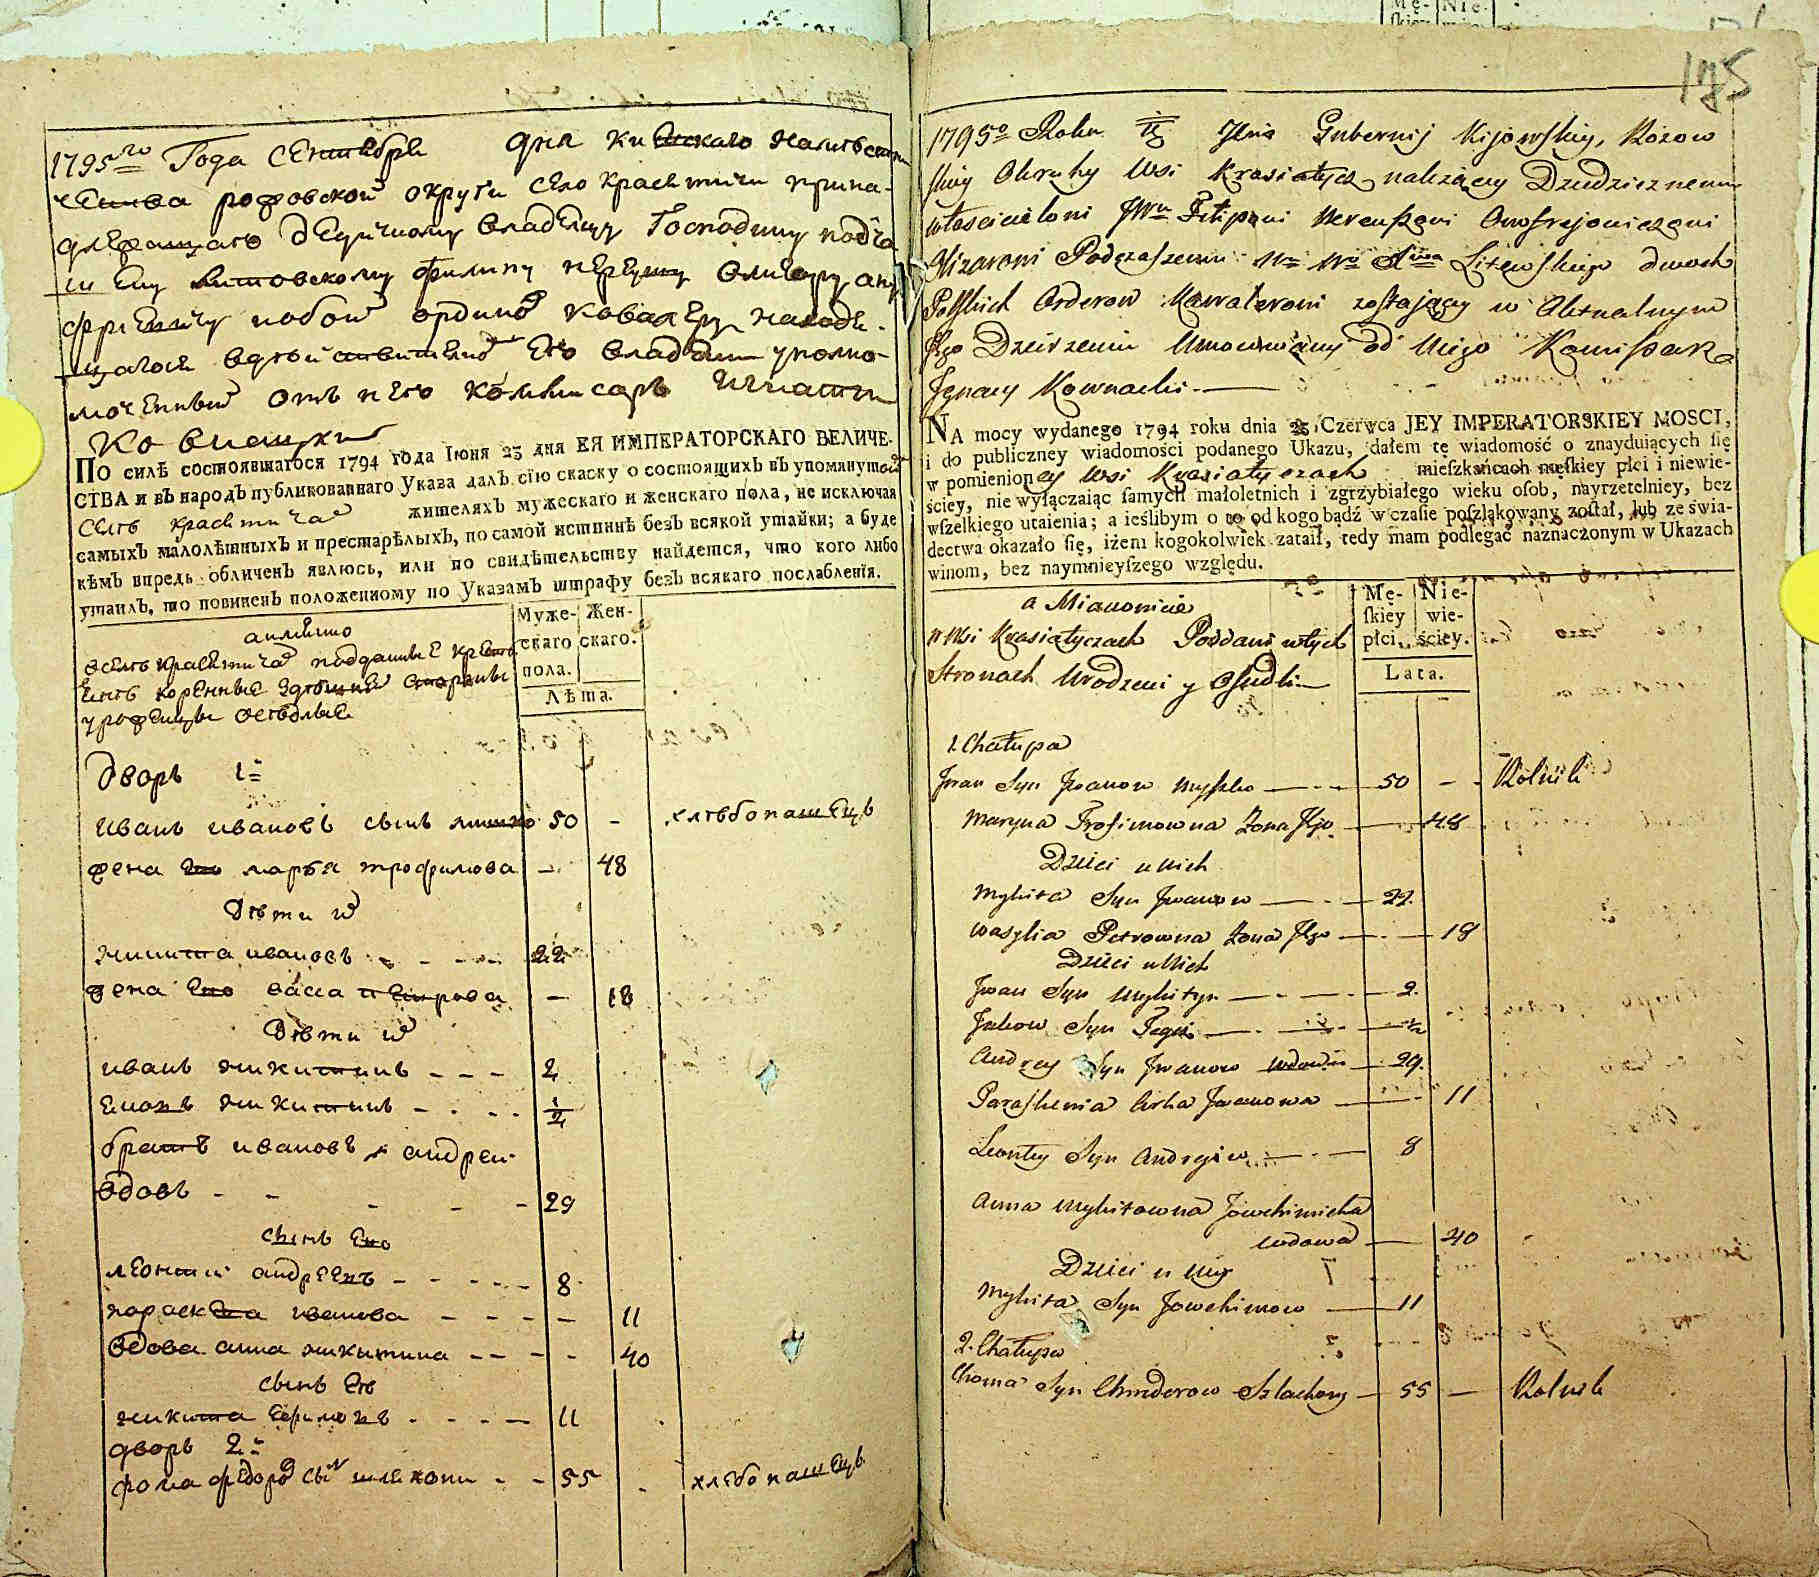 1795го Года Сентября дня Киевскаго намѣстни
чества рожовской округи село красятичи прина-
длежащаго дедичному владелцу Господину подча
шему Литовскому Филипу нерезушу олизару ану
фриевичу обои ордино кавалеру находя-
щагося вдѣйствително его владении уполно-
моченный отъ него коммисаръ Игнатiи
Ковнацки
По силѣ состоявшагося 1794 года Іюня 23 дня ЕЯ ИМПЕРАТОРСКАГО ВЕЛИЧЕ-
СТВА и въ народъ публикованнаго Указа далъ сїю скаску о состоящихъ въ упомянутой
селѣ красятичах жителяхъ мужескаго и женскаго пола, не исключая
самыхъ малолѣтныхъ и престарѣлыхъ, по самой истиннѣ безъ всякой утайки; а буде
кѣмъ впредь обличенъ явлюсь, или по свидѣтельству найдется, что кого либо
утаилъ, то повиненъ положенному по Указамъ штрафу безъ всякаго послабленїя.
Муже-
скаго
пола.
Жен-
скаго.
Лѣта.
аимѣнно
вселѣ красятичах подданные
коренные здѣшние
урожейцы оселые
Дворъ 1й
Иванъ ивановъ сынъ мишко 50 - хлѣбопашецъ
жена его марья трофимова - 48
Дѣти их
никита ивановъ - - - 22
жена его васса петрова - 18
Дѣти их
иванъ никитинъ - - - 2
яковъ никитинъ - - - 1/2
братъ ивановъ андрей
вдовъ - - - - 29
сынъ его
леонтий андреевъ - - - - 8
параскева иванова - - - - 11
вдова анна никитина - - - - 40
сынъ ея
никита ефимовъ - - - - 11
дворъ 2й
фома федоров сын шляхови - - 55 - хлѣбопашецъ
175
1795o Roku Dnia Gubernij Kijowskiey, Rozow
skiey Okruhy Wsi Krasiatycz należącey Dziedzicznemu
właścicielowi JWu Filipowi Nereuszowi Onofrejowiczowi
Olizarowi Podczaszemu Litewskiego dwoch
Polskich Orderow Kawalerowi zostaiący w Aktualnym
Jego Dzierzeniu Umocowany od Niego Kommisarz
Ignacy Kownacki.
NA mocy wydanego 1794 roku dnia 23 Czerwca JEY IMPERATORSKIEY MOSCI,
i do publiczney wiadomości podanego Ukazu, dałem tę wiadomość o znayduiących się
w pomienioney Wsi Krasiatyczach mieszkańcach męskiey płci i niewie-
ściey, nie wyłączaiąc samych małoletnich i zgrzybiałego wieku osob, nayrzetelniey, bez
wszelkiego utaienia; a ieślibym o to od kogo bądź w czasie poszlakowany został, lub ze świa-
dectwa okazało się, iżem kogokolwiek zataił, tedy mam podlegać naznaczonym w Ukazach
winom, bez naymnieyszego względu.
a Mianowicie
w Wsi Krasiatyczach Poddani wtych
Stronach Urodzeni y Osiedli
Mę-
skiey
płci.
Nie-
wie-
ściey.
Lata.
1. Chałupa
Jwan Syn Jwanow Myszko 50 - - Rolnik
Maryna Trofimowna Zona Jego 48
Dzieci u Nich
Mykita Syn Jwanow 22
Wasylia Petrowna Zona Jego 18
Dzieci u Nich
Jwan Syn Mykityn 2
Jakow Syn Tegoż 1/2
Andrey Syn Jwanow Wdowiec 29
Paraskewia Curka Jwanowa 11
Leontey Syn Andrejiew 8
Anna Mykitowna Jowchimicha
wdowa 40
Dzieci u Niey
Mykita Syn Jowchimow 11
2. Chałupa
Choma Syn Chwedorow Szlachowy 55 - Rolnik